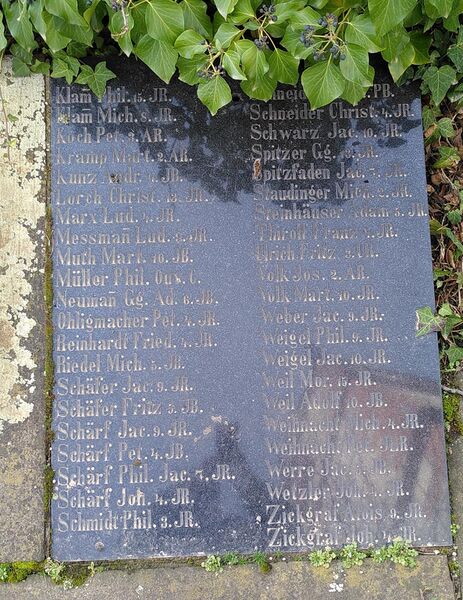 Klam Phil. 15. JR.
Klam Mich. 8. JR.
Koch Pet. 8. AR.
Kramp Mart. 2. AR.
Kunz JR.
Lorch Christ. 13. JR.
Marx Lud. JR.
Messmañ Lud. JR.
Muth Mart. 10. JB.
Müller Phil. C.
Neumañ Gg. Ad. 6. JB.
Ohligmacher Pet. 4. JR.
Reinhardt Fried. 4. JR.
Riedel Mich. 5. JB.
Schäfer Jac. 9. JR.
Schäfer Fritz 5. JB.
Schärf Jac. 9. JR.
Schärf Pet. 4. JB.
Schärf Phil. Jac. 7. JR.
Schärf Joh. 4. JR.
Schmidt Phil. 3. JR.
PB.
Schneider Christ. 4. JR.
Schwarz Jac. 10. JR.
Spitzer Gg. JR.
Spitzfaden Jac. 7. JR.
Staudinger Mich. 2. JR.
Steinhäuser Adam 5. JR.
Thiroff Franz JR.
Ulrich Fritz 2. UR.
Volk Jos. 2. AR.
Volk Mart. 10. JR.
Weber Jac. 9. JR.
Weigel Phil. 9. JR.
Weigel Jac. 10. JR.
Weil Mor. 15. JR.
Weil Adolf 10. JB.
Weihnacht Mich. 4. JR.
Weihnacht Pet. JLR.
Werre Jac. JB.
Wetzler Joh. 4. JR.
Zickgraf Alois 9. JR.
Zickgraf Joh. 4. JR.